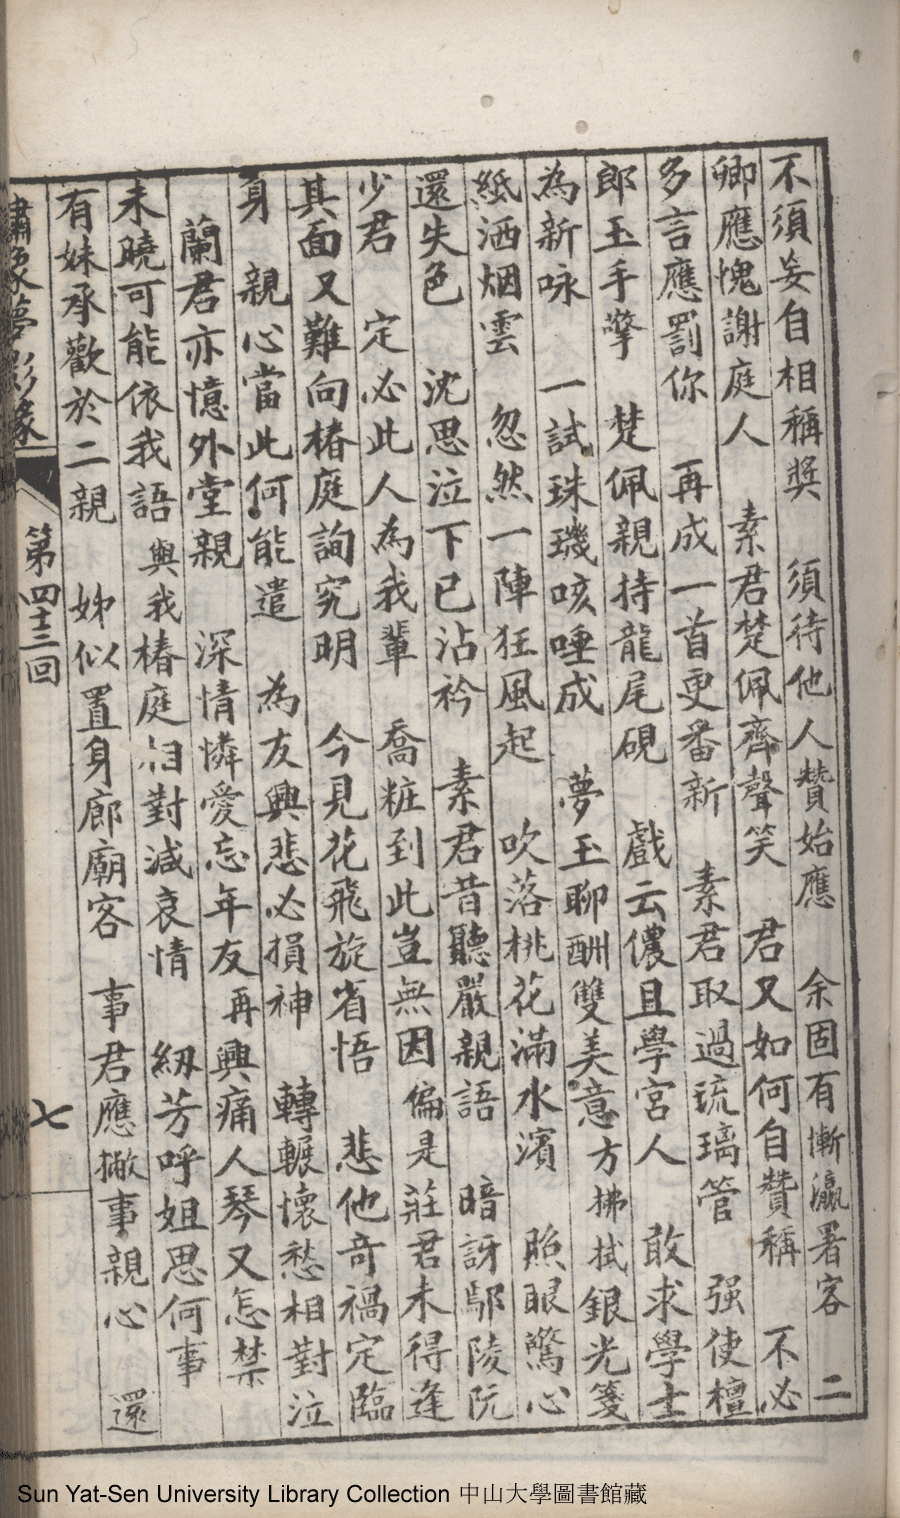 不須妄自相稱奬　須待他人贊始應　余固有慚瀛署客　二
卿應愧謝庭人　素君楚佩齊聲笑　君又如何自贊稱　不必
多言應罰你　再成一首更番新　素君取過琉璃管　强使檀
郎玉手擎　楚佩親持龍尾硯　戲云儂且學宮人　敢求學士
為新咏　一試珠璣咳唾成　夢玉聊酬雙美意　方拂拭銀光箋
紙洒烟雲　忽然一陣狂風起　吹落桃花滿水濱　照眼驚心
還失色　沈思泣下已沾衿　素君昔聽嚴親語　暗訝鄢陵阮
少君　定必此人為我輩　喬粧到此豈無因　偏是莊君未得逢
其面又難向椿庭詢究明　今見花飛旋省悟　悲他奇禍定臨
身　親心當此何能遣　為友興悲必損神　轉輾懷愁相對泣
蘭君亦憶外堂親　深情憐愛忘年友　再興痛人琴又怎禁
未曉可能依我語　與我椿庭相對減哀情　紉芳呼姐思何事
有妹承歡於二親　姊似置身廊廟客　事君應撇事親心　還
繡像夢影緣　第四十三回　七
Sun Yat-Sen University Library Collection 中山大學圖書館藏